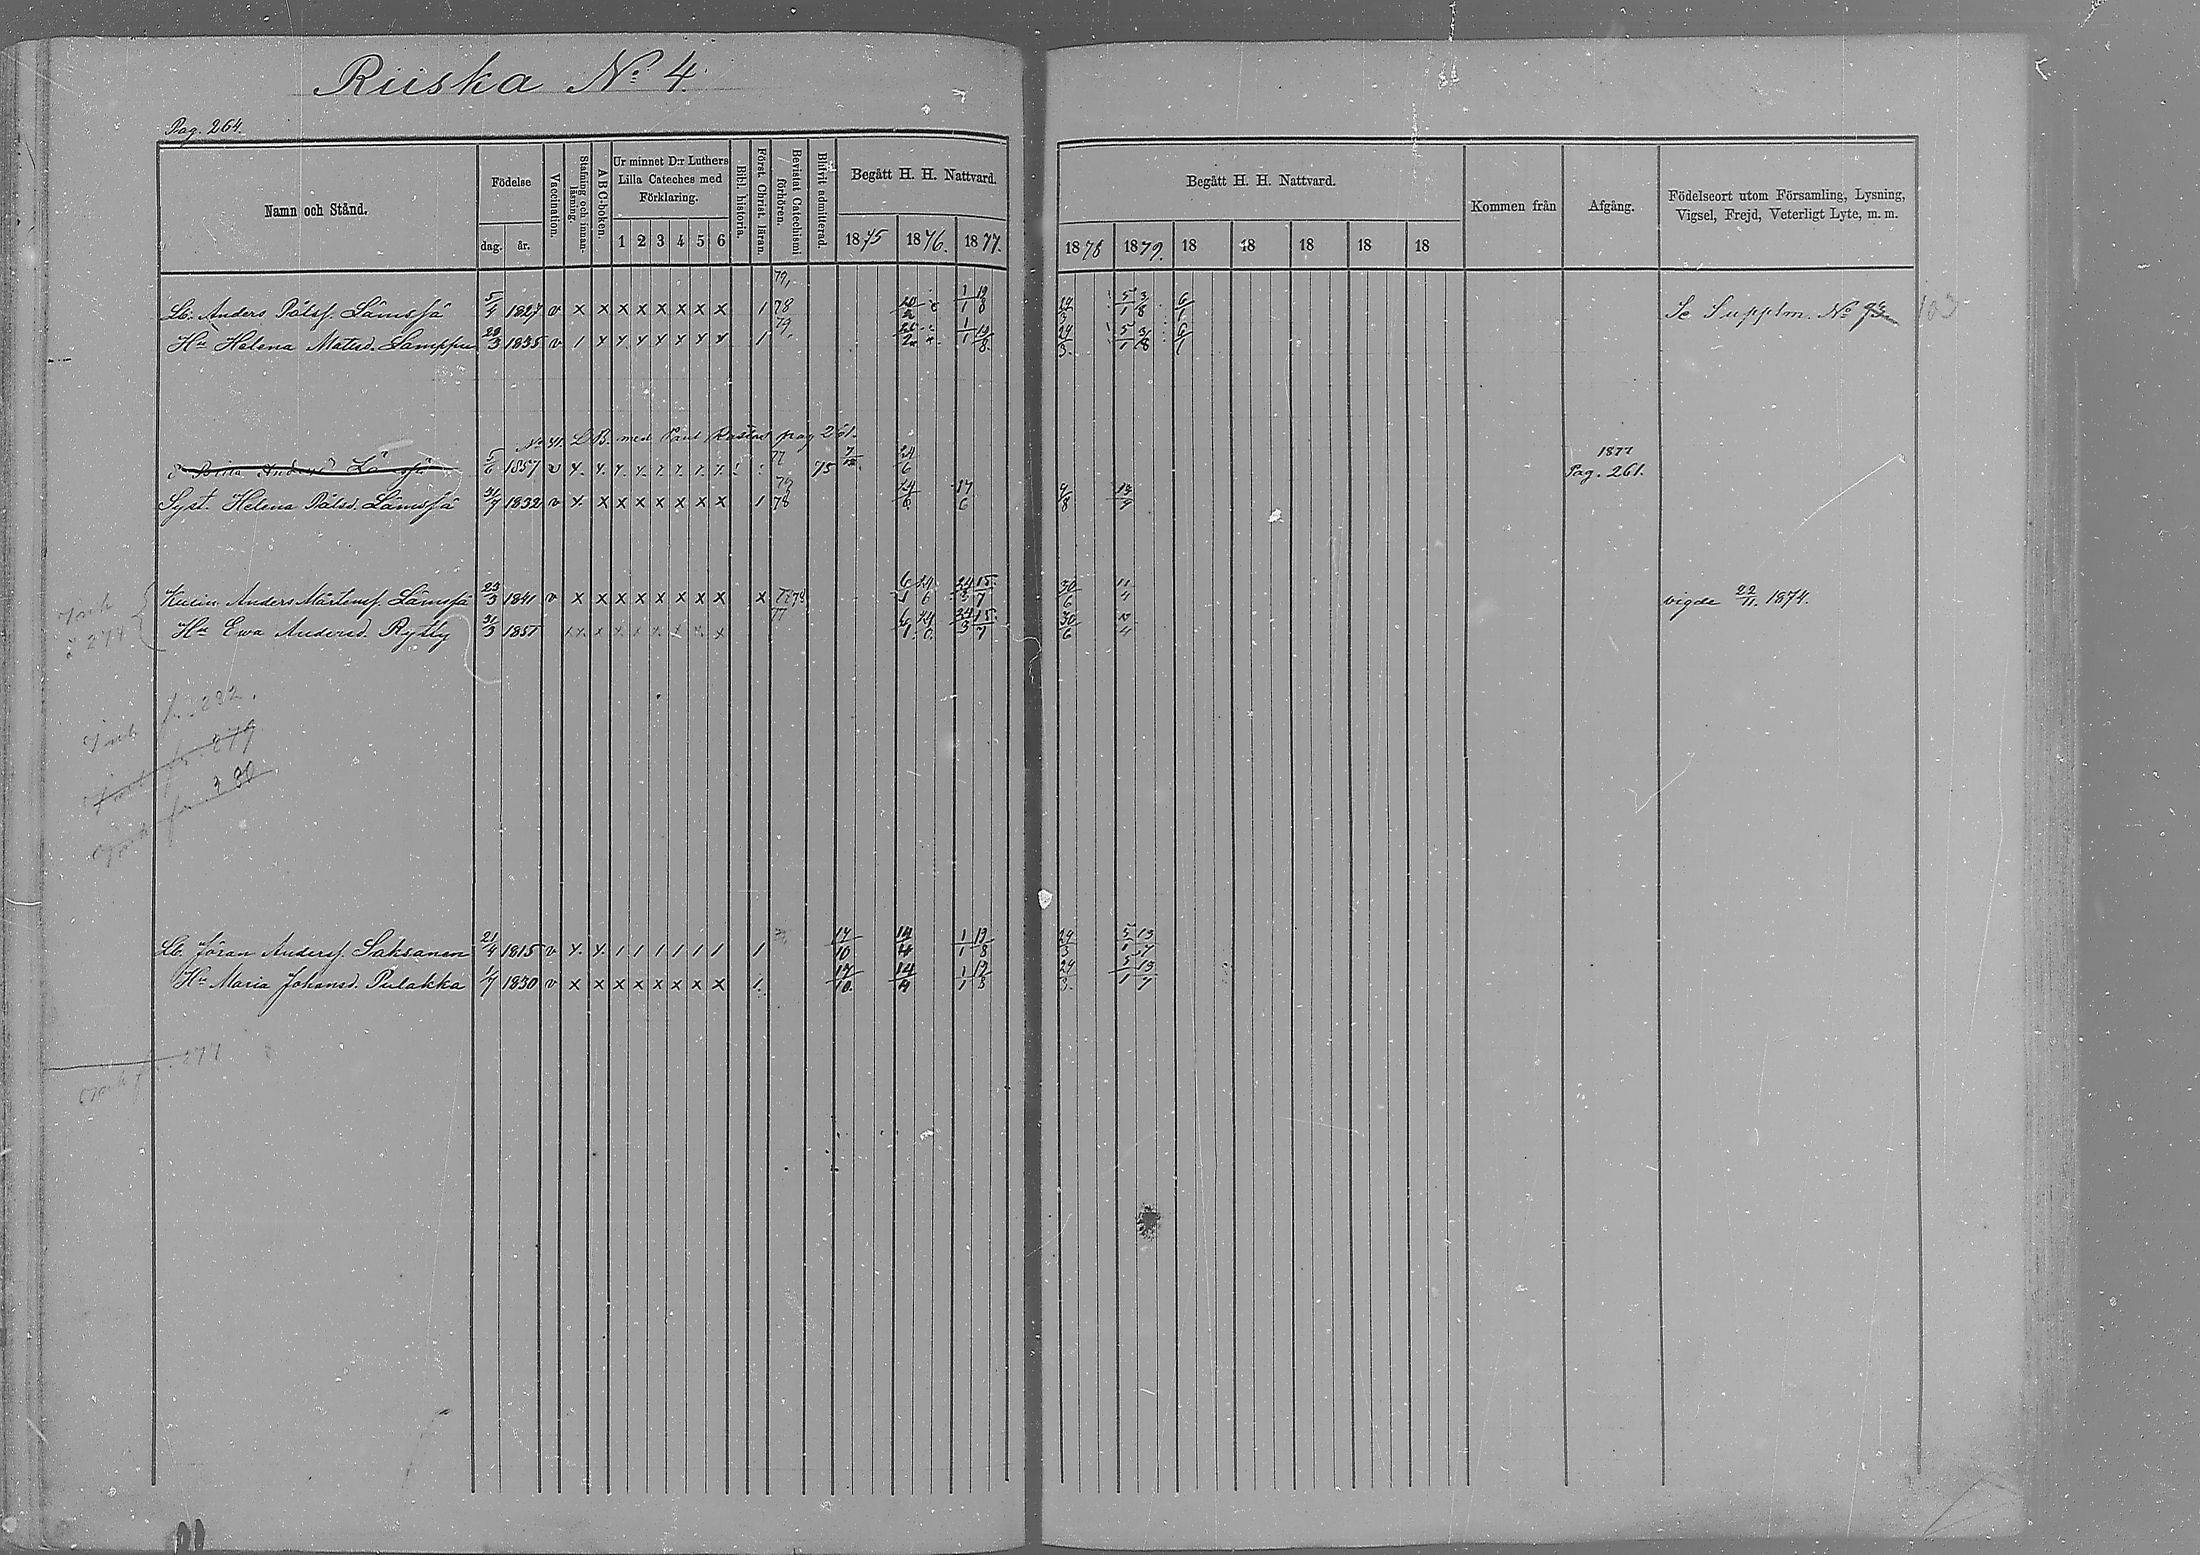 Riiska No 4.
Pag. 264.
Namn och Stånd.
Födelse
dag. år.
Vaccination.
Stafning och innan-läsning.
A B C-boken.
Ur minnet D:r Luthers
Lilla Cateches med
Förklaring.
1 2 3 4 5 6
Bibl. historia.
Först. Christ. läran.
Bevistat Catechismi förhören.
Blifvit admitterad.
Begått H. H. Nattvard.
1875 1876. 1877.
Begått H. H. Nattvard.
1878 1879. 18 18 18 18 18
Kommen från
Afgång.
Födelseort utom Församling, Lysning,
Vigsel, Frejd, Veterligt Lyte, m. m.
79,
Lb. Anders Pålsf. Lämsjä 5/4 1827 v x x x x x x x x 1 78 1/1 19/8 5/1 3/8 6/1 Se Supplm. No 93 103
Hu Helena Matsd. Lamppu 28/3 1835 v 1 x x x x x x x 1 79, 1/1 19/8. 24/3. 5/1 3/8 6/1
No 41 L.B. med Paul pag 261.
Brita Anders 5/6 1857 v x. x. x. x. x. x. x. x. 77 75 24/6 1877 Pag. 261.
Syst. Helena Pålsd. Lämsjä 31/7 1832 v x. x x x x x x x 1 79 78 24/6 17/6 4/8 13/7
Kusin Anders Mårtensf. Lämsjä 23/3 1841 v x x x x x x x x x 6/1 24/6 24/3 15/7 30/6 11/4 vigde 22/11. 1874.
Hu Ewa Andersd. Rytty 31/3 1851 x x x x x x x x 77 6/1 24/6. 24/3 15/7 30/6 11/4
Insk
Insk fr. 282.
fr. 279
fr. 280
Lb. Jöran Andersf. Saksanen 21/4 1815 v x. x. 1 1 1 1 1 1 1 17/10 14/4 1/1 19/8 24/3 5/1 13/7
Hu Maria Johansd. Pulakka 1/7 1830 v x x x x x x x x 1. 17/10. 14/4 1/1 19/8 24/3. 5/1 13/7
277